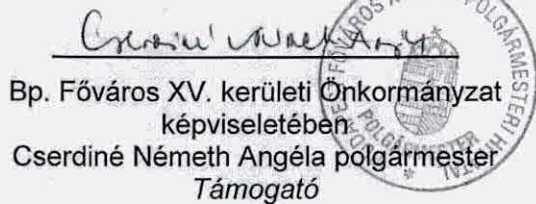 Cserdiné Németh Angéla
Bp. Főváros XV. kerületi Önkormányzat
képviseletében
Cserdiné Németh Angéla polgármester
Támogató
POLGÁRMESTERI HIVATAL
POLGÁRMESTER